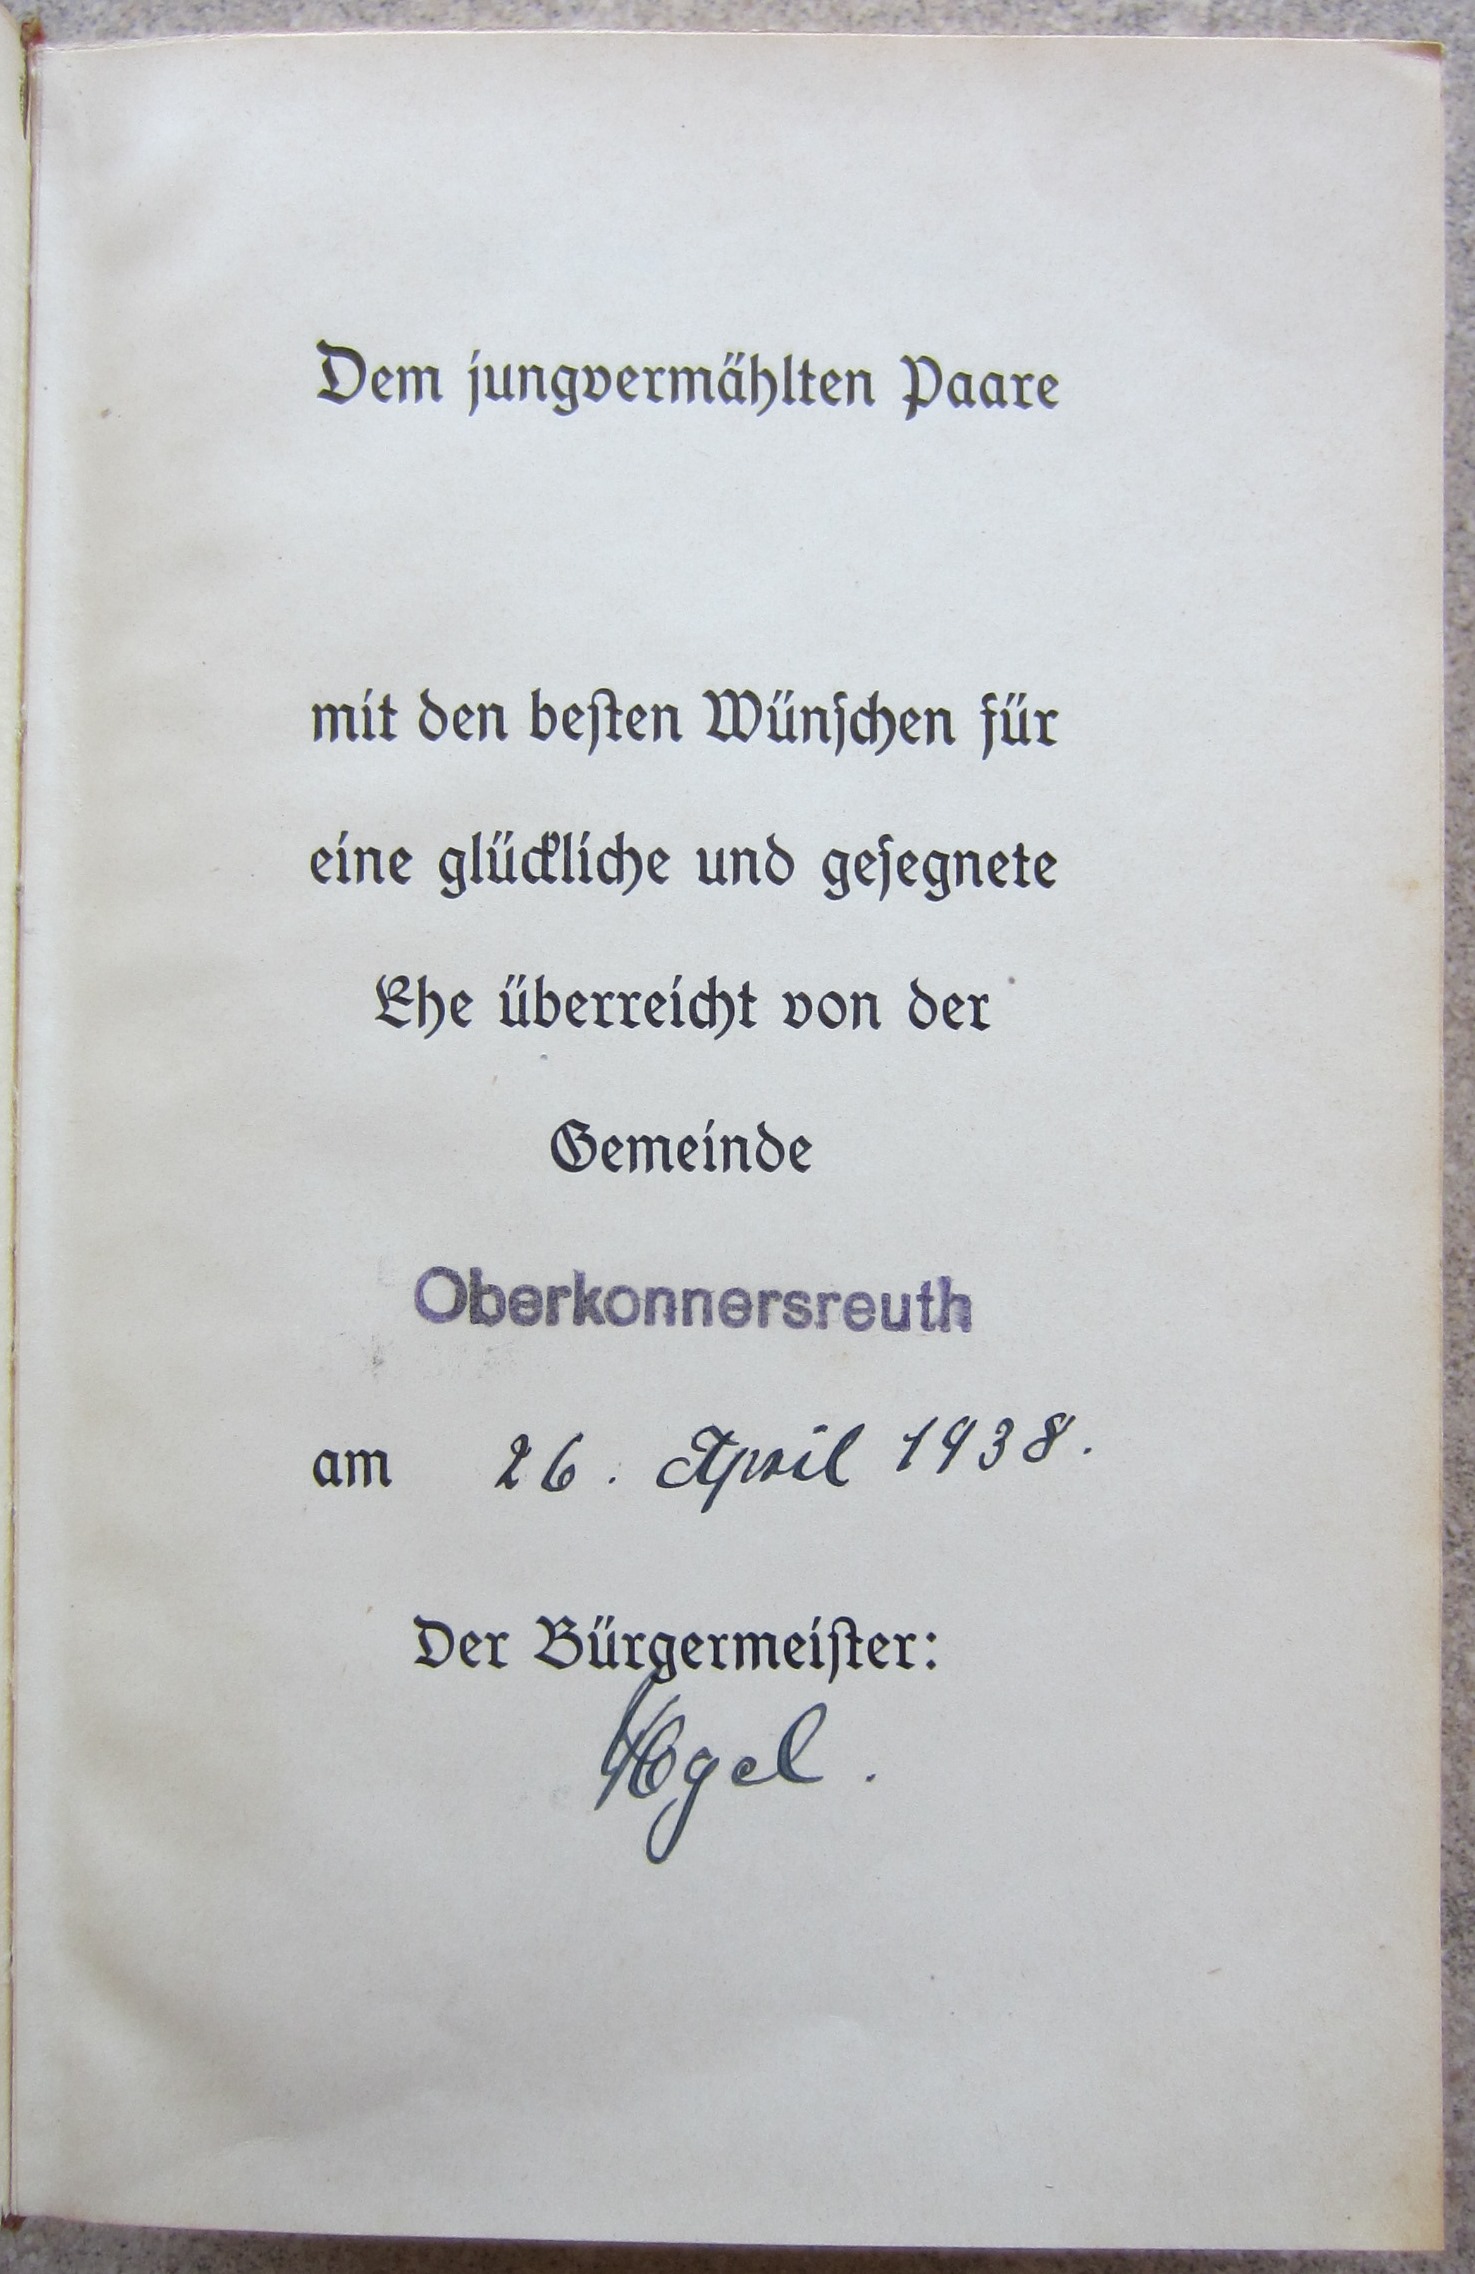 Dem jungvermählten Paare
mit den besten Wünschen für
eine glückliche und gesegnete
Ehe überreicht von der
Gemeinde
Oberkonnersreuth
am 26. April 1938.
Der Bürgermeister: